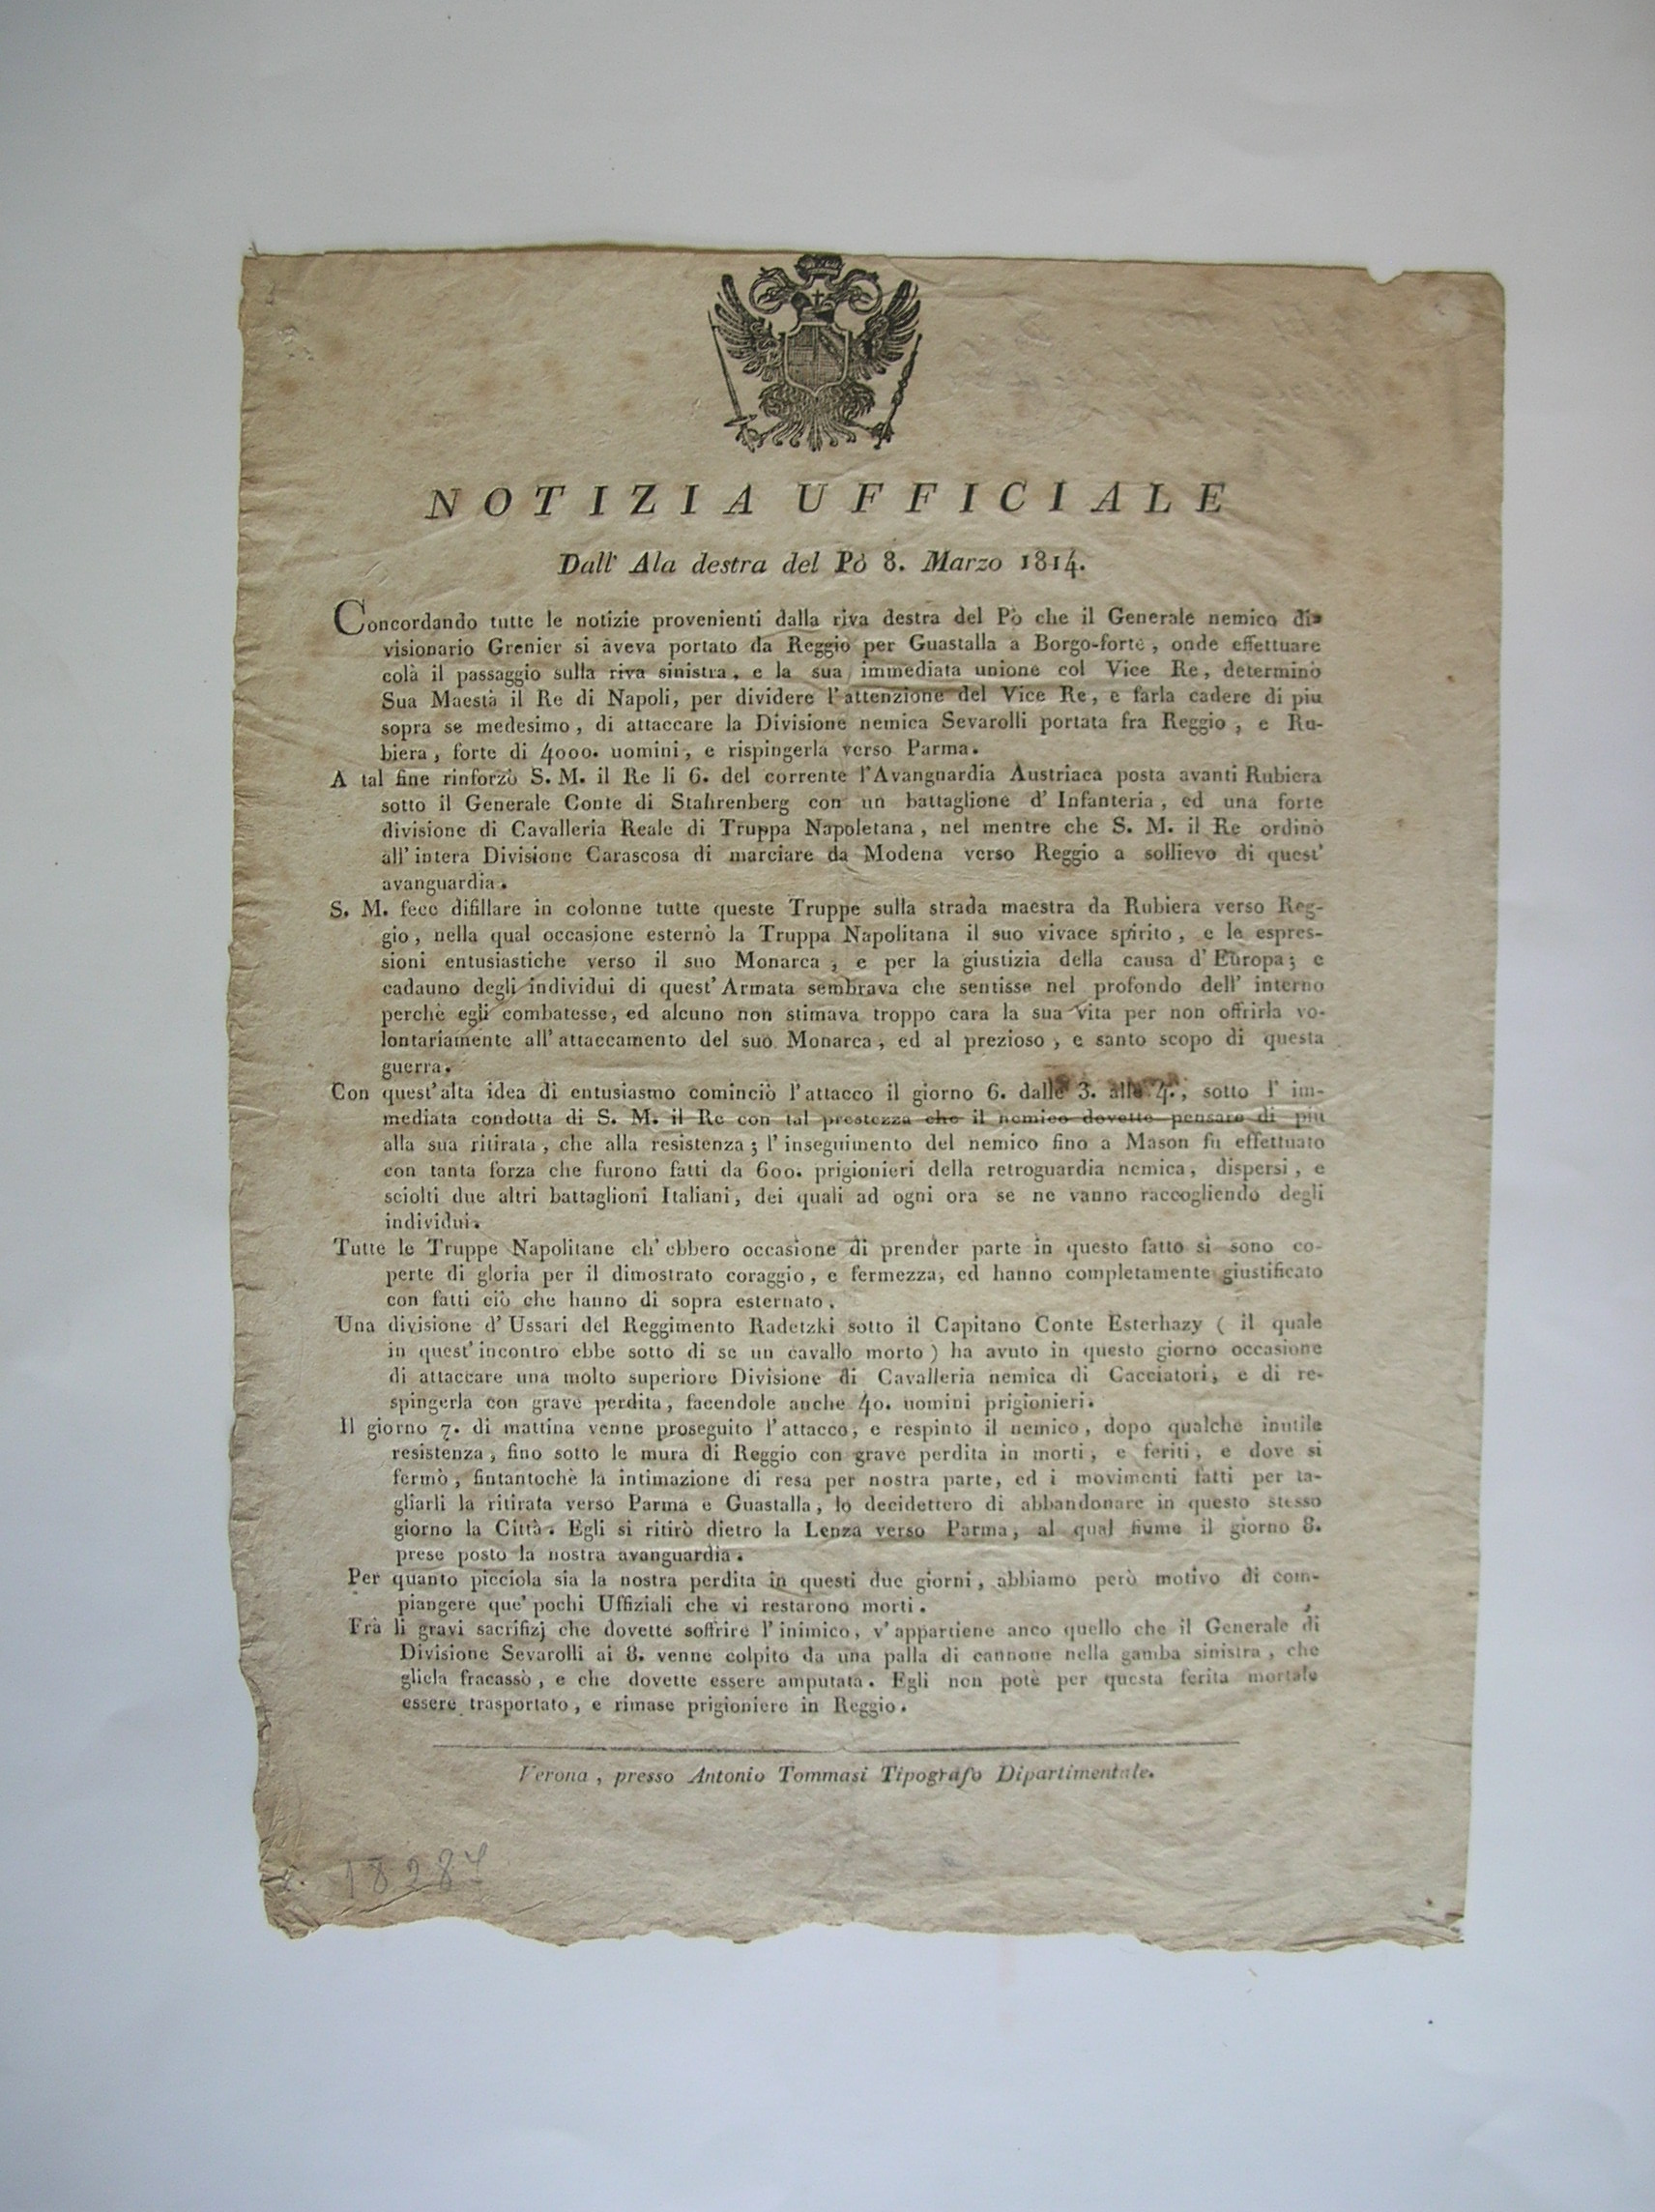 NOTIZIA UFFICIALE
Dall' Ala destra del Pò 8. Marzo 1814.
Concordando tutte le notizie provenienti dalla riva destra del Pò che il Generale nemico di-
visionario Grenier si aveva portato da Reggio per Guastalla a Borgo-forte, onde effettuare
colà il passaggio sulla riva sinistra, e la sua immediata unione col Vice Re, determinò
Sua Maestà il Re di Napoli, per dividere l'attenzione del Vice Re, e farla cadere di piu
sopra se medesimo, di attaccare la Divisione nemica Sevarolli portata fra Reggio, e Ru-
biera, forte di 4000. uomini, e rispingerla verso Parma.
A tal fine rinforzò S. M. il Re li 6. del corrente l'Avanguardia Austriaca posta avanti Rubiera
sotto il Generale Conte di Stahrenberg con un battaglione d' Infanteria, ed una forte
divisione di Cavalleria Reale di Truppa Napoletana, nel mentre che S. M. il Re ordinò
all' intera Divisione Carascosa di marciare da Modena verso Reggio a sollievo di quest'
avanguardia.
S. M. fece difillare in colonne tutte queste Truppe sulla strada maestra da Rubiera verso Reg-
gio, nella qual occasione esternò la Truppa Napolitana il suo vivace spirito, e le espres-
sioni entusiastiche verso il suo Monarca, e per la giustizia della causa d' Europa; e
cadauno degli individui di quest' Armata sembrava che sentisse nel profondo dell' interno
perchè egli combatesse, ed alcuno non stimava troppo cara la sua vita per non offrirla vo-
lontariamente all' attaccamento del suo Monarca, ed al prezioso, e santo scopo di questa
guerra.
Con quest' alta idea di entusiasmo cominciò l'attacco il giorno 6. dalle 3. alle 4., sotto l' im-
mediata condotta di S. M. il Re con tal prestezza che il nemico dovette pensare di più
alla sua ritirata, che alla resistenza; l' inseguimento del nemico fino a Mason fu effettuato
con tanta forza che furono fatti da 600. prigionieri della retroguardia nemica, dispersi, e
sciolti due altri battaglioni Italiani, dei quali ad ogni ora se ne vanno raccogliendo degli
individui.
Tutte le Truppe Napolitane ch' ebbero occasione di prender parte in questo fatto si sono co-
perte di gloria per il dimostrato coraggio, e fermezza, ed hanno completamente giustificato
con fatti ciò che hanno di sopra esternato.
Una divisione d' Ussari del Reggimento Radetzki sotto il Capitano Conte Esterhazy ( il quale
in quest' incontro ebbe sotto di se un cavallo morto ) ha avuto in questo giorno occasione
di attaccare una molto superiore Divisione di Cavalleria nemica di Cacciatori, e di re-
spingerla con grave perdita, facendole anche 40. uomini prigionieri.
Il giorno 7. di mattina venne proseguito l'attacco, e respinto il nemico, dopo qualche inutile
resistenza, fino sotto le mura di Reggio con grave perdita in morti, e feriti, e dove si
fermò, fintantochè la intimazione di resa per nostra parte, ed i movimenti fatti per ta-
gliarli la ritirata verso Parma e Guastalla, lo decidettero di abbandonare in questo stesso
giorno la Città. Egli si ritirò dietro la Lenza verso Parma, al qual fiume il giorno 8.
prese posto la nostra avanguardia.
Per quanto picciola sia la nostra perdita in questi due giorni, abbiamo però motivo di com-
piangere que' pochi Uffiziali che vi restarono morti.
Frà li gravi sacrifizj che dovette soffrire l' inimico, v' appartiene anco quello che il Generale di
Divisione Sevarolli ai 8. venne colpito da una palla di cannone nella gamba sinistra, che
gliela fracassò, e che dovette essere amputata. Egli non potè per questa ferita mortale
essere trasportato, e rimase prigioniere in Reggio.
Verona, presso Antonio Tommasi Tipografo Dipartimentale.
18287